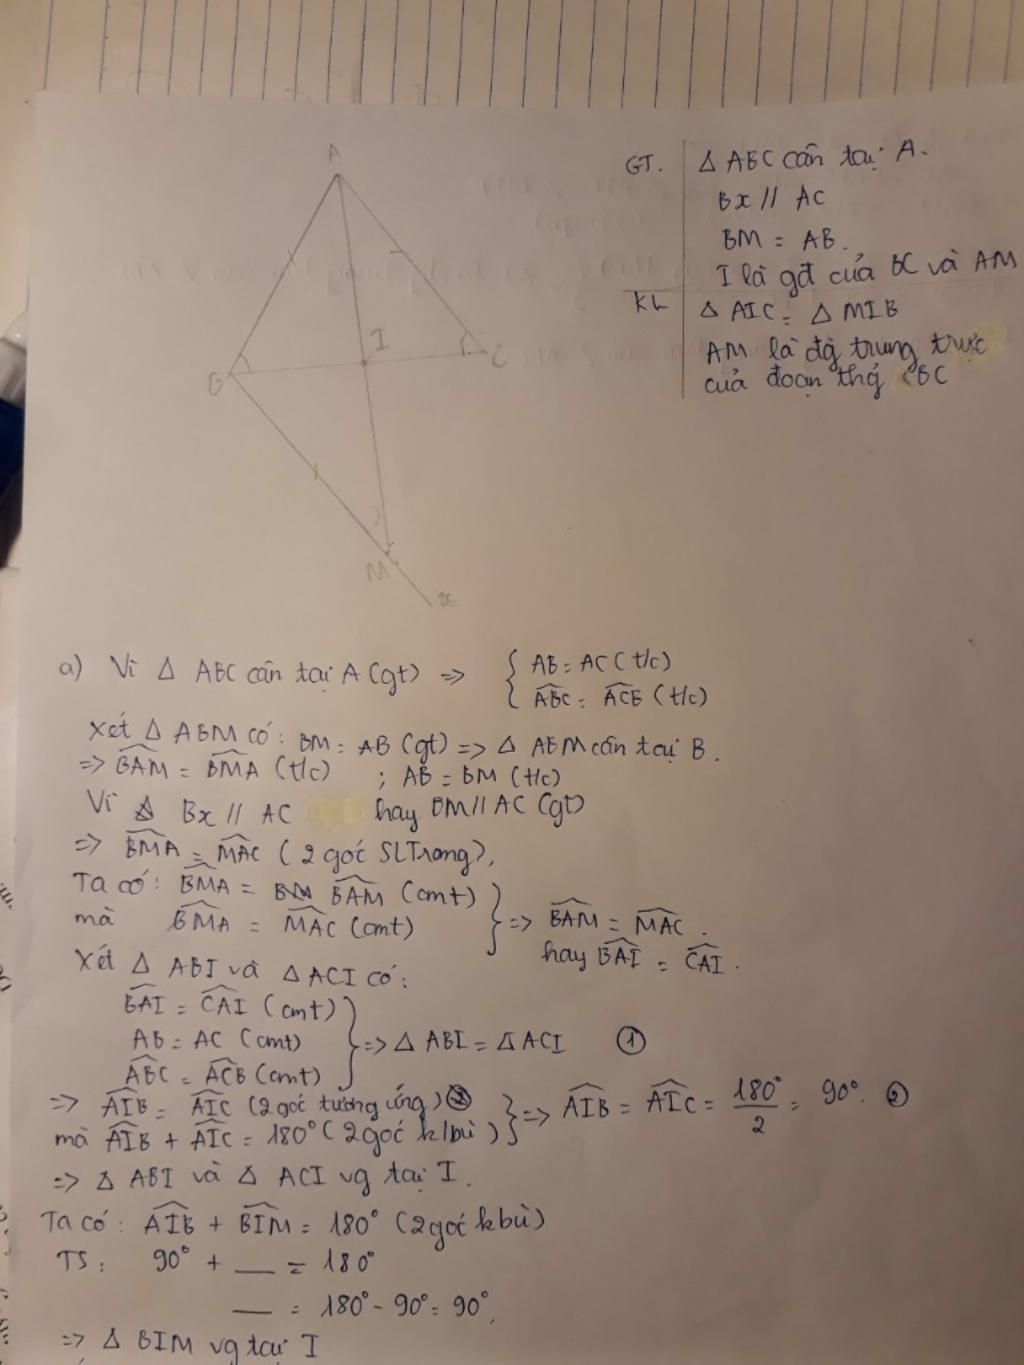 A
I
B
C
M
x
GT. Δ ABC cân tại A.
Bx // AC
BM = AB.
I là gđ của BC và AM
KL Δ AIC = Δ MIB
AM là đg trung trực
của đoạn thg BC
a) Vì Δ ABC cân tại A (gt) => { AB = AC (t/c)
ABC = ACB (t/c)
Xét Δ ABM có: BM = AB (gt) => Δ ABM cân tại B.
=> BAM = BMA (t/c) ; AB = BM (t/c)
Vì Bx // AC hay BM // AC (gt)
=> BMA = MAC (2 góc SLTrong),
Ta có: BMA = BAM (cmt)
mà BMA = MAC (cmt) } => BAM = MAC.
hay BAI = CAI.
Xét Δ ABI và Δ ACI có:
BAI = CAI (cmt)
AB = AC (cmt) } => Δ ABI = Δ ACI ①
ABC = ACB (cmt)
=> AIB = AIC (2 góc tương ứng) } => AIB = AIC = 180°/2 = 90°. ②
mà AIB + AIC = 180° (2 góc k/bù)
=> Δ ABI và Δ ACI vg tại I.
Ta có: AIB + BIM = 180° (2 góc k bù)
TS: 90° + __ = 180°
__ = 180° - 90° = 90°.
=> Δ BIM vg tại I